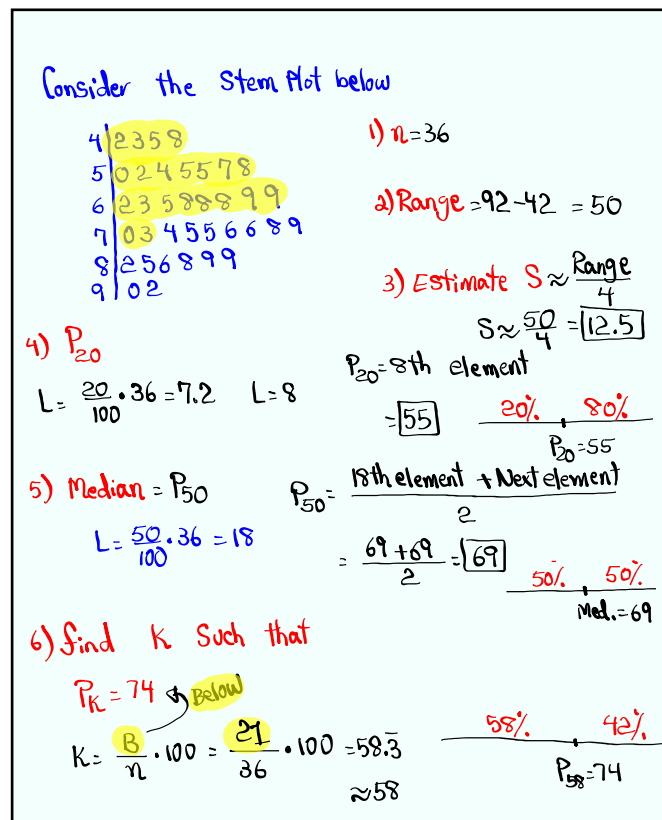 Consider the Stem Plot below
4 | 2 3 5 8
5 | 0 2 4 5 5 7 8
6 | 2 3 5 8 8 8 9 9
7 | 0 3 4 5 5 6 6 8 9
8 | 2 5 6 8 9 9
9 | 0 2
1) n=36
2) Range = 92-42 = 50
3) Estimate S ≈ Range/4
S ≈ 50/4 = 12.5
4) P20
L = 20/100 · 36 = 7.2 L = 8
P20 = 8th element
= 55
20% 80%
P20 = 55
5) Median = P50
L = 50/100 · 36 = 18
P50 = 18th element + Next element / 2
= 69+69/2 = 69
50% 50%
Med. = 69
6) find K Such that
PK = 74 Below
K = B/n · 100 = 21/36 · 100 = 58.3̅
≈ 58
58% 42%
P58 = 74